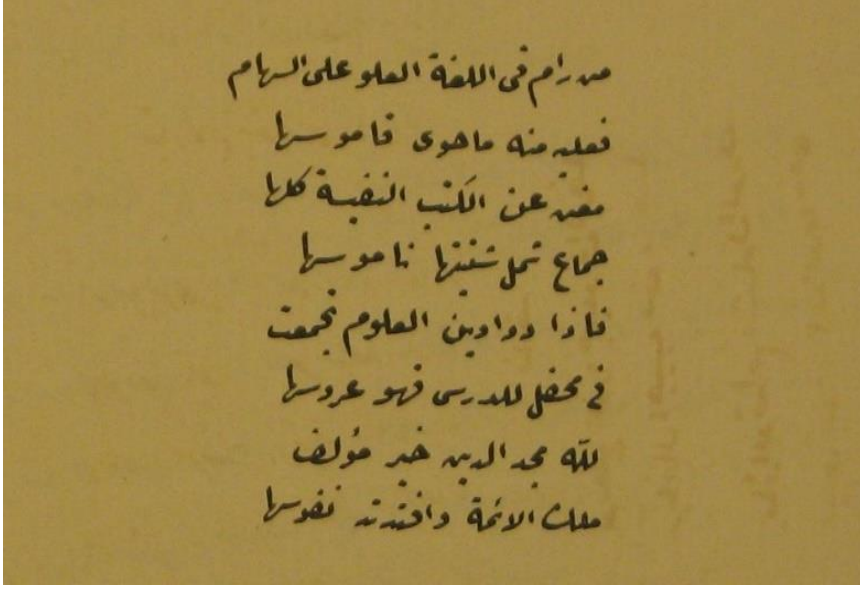 من رام في اللغة العلو على السها
فعليه منه ما حوى قاموسها
مغن عن الكتب النفيسة كلها
جماع شمل شتيتها ناموسها
فاذا دواوين العلوم تجمعت
في محفل للدرس فهو عروسها
لله مجد الدين خير مؤلف
ملك الائمة وافتدته نفوسها